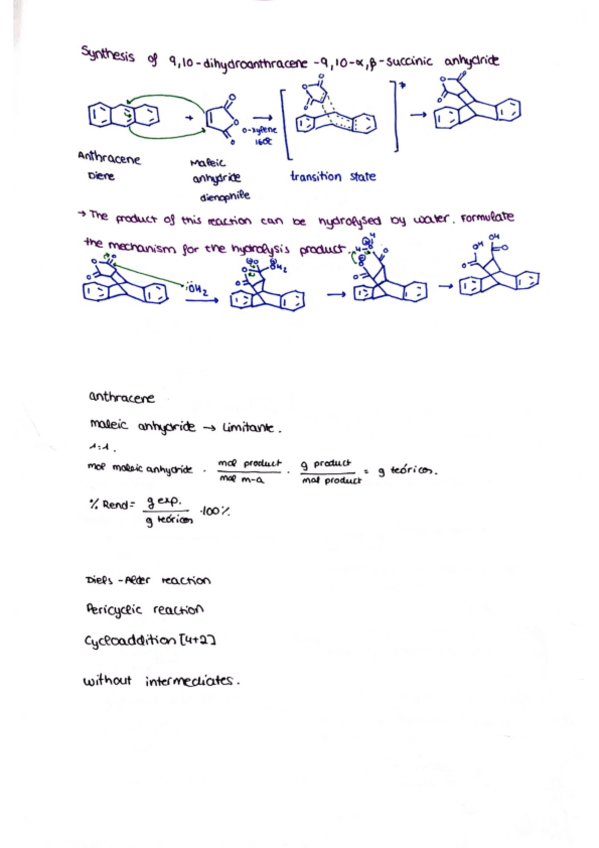 Synthesis of 9,10-dihydroanthracene-9,10-α,β-succinic anhydride
+
o-xylene
160ºC
Anthracene
Diene
Maleic
anhydride
dienophile
transition state
→ The product of this reaction can be hydrolysed by water. Formulate
the mechanism for the hydrolysis product.
:ÖH₂
anthracene
maleic anhydride → Limitante.
1:1.
mol maleic anhydride · mol product / mol m-a · g product / mol product = g teóricos.
% Rend = g exp. / g teóricos ·100%
Diels-Alder reaction
Pericyclic reaction
Cycloaddition [4+2]
without intermediates.